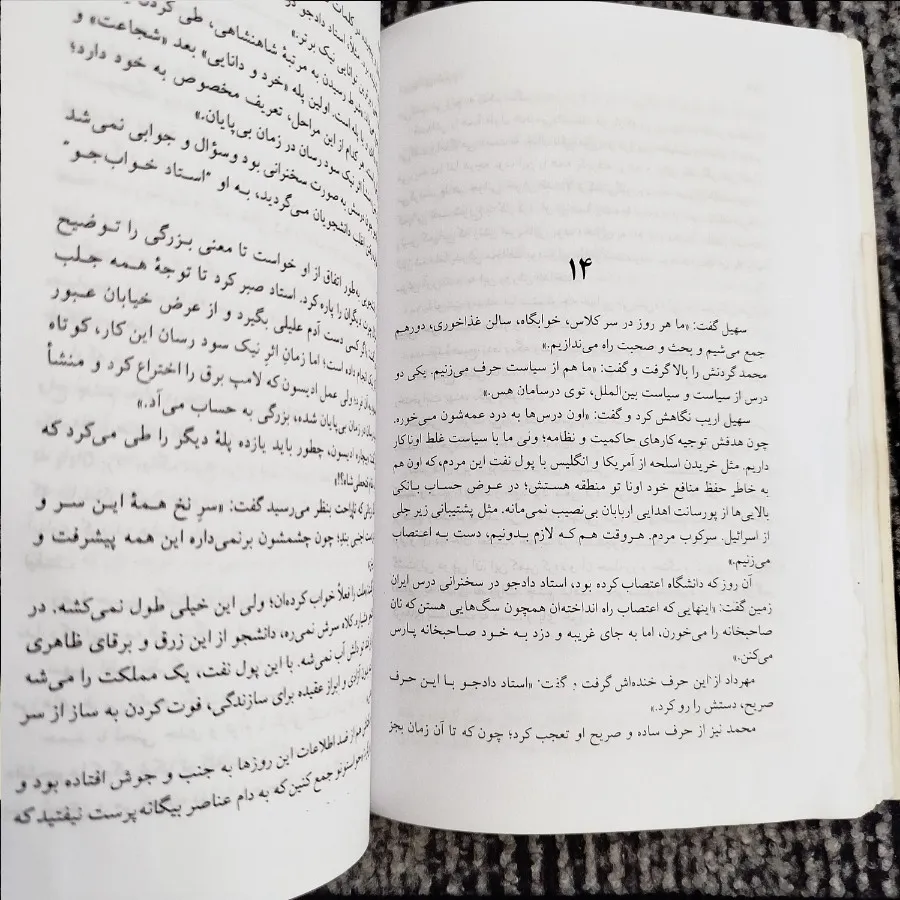 ۱۴
سهیل گفت: «ما هر روز در سر کلاس، خوابگاه، سالن غذاخوری، دورهم
جمع می‌شیم و بحث و صحبت راه می‌ندازیم.»
محمد گردنش را بالا گرفت و گفت: «ما هم از سیاست حرف می‌زنیم. یکی دو
درس از سیاست و سیاست بین‌الملل، توی درسامان هس.»
سهیل اریب نگاهش کرد و گفت: «اون درس‌ها به درد عمه‌شون می‌خوره.
چون هدفش توجیه کارهای حاکمیت و نظامه؛ ولی ما با سیاست غلط اوناکار
داریم. مثل خریدن اسلحه از آمریکا و انگلیس با پول نفت این مردم، که اون هم
به خاطر حفظ منافع خود اونا تو منطقه هستش؛ در عوض حساب بانکی
بالایی‌ها از پورسانت اهدایی اربابان بی‌نصیب نمی‌مانه. مثل پشتیبانی زیر جلی
از اسرائیل. سرکوب مردم. هروقت هم که لازم بدونیم، دست به اعتصاب
می‌زنیم.»
آن روز که دانشگاه اعتصاب کرده بود، استاد دادجو در سخنرانی درس ایران
زمین گفت: «اینهایی که اعتصاب راه انداخته‌ان همچون سگ‌هایی هستن که نان
صاحبخانه را می‌خورن، اما به جای غریبه و دزد به خود صاحبخانه پارس
می‌کنن.»
مهرداد از این حرف خنده‌اش گرفت و گفت: «استاد دادجو با این حرف
صریح، دستش را رو کرد.»
محمد نیز از حرف ساده و صریح او تعجب کرد؛ چون که تا آن زمان بجز
استاد دادجو
توانایی نیک برتر.»
شرط رسیدن به مرتبهٔ شاهنشاهی، طی کردن
پله است. اولین پله «خرد و دانایی» بعد «شجاعت» و
هر کدام از این مراحل، تعریف مخصوص به خود دارد؛
اثر نیک سود رسان در زمان بی‌پایان.»
به صورت سخنرانی بود و سؤال و جوابی نمی‌شد
اغلب دانشجویان می‌گردید، به او "استاد خواب‌جو"
به‌طور اتفاق از او خواست تا معنی بزرگی را توضیح
دیگران را پاره کرد. استاد صبر کرد تا توجهٔ همه جلب
کسی دست آدم علیلی بگیرد و از عرض خیابان عبور
انجام داده است؛ اما زمان اثر نیک سود رسان این کار، کوتاه
ولی عمل ادیسون که لامپ برق را اختراع کرد و منشأ
زمان بی‌پایان شده، بزرگی به حساب می‌آد.»
ادیسون، چطور باید یازده پلهٔ دیگر را طی می‌کرد که
ناراحت بنظر می‌رسید گفت: «سر نخ همهٔ این سر و
اجنبی بند؛ چون چشمشون برنمی‌داره این همه پیشرفت و
را فعلاً خواب کرده‌ان؛ ولی این خیلی طول نمی‌کشه. در
کلاه سرش نمی‌ره، دانشجو از این زرق و برقای ظاهری
دلش آب نمی‌شه. با این پول نفت، یک مملکت را می‌شه
آزادی و ابراز عقیده برای سازندگی، فوت کردن به ساز از سر
ضد اطلاعات این روزها به جنب و جوش افتاده بود و
جمع کنین که به دام عناصر بیگانه پرست نیفتید که